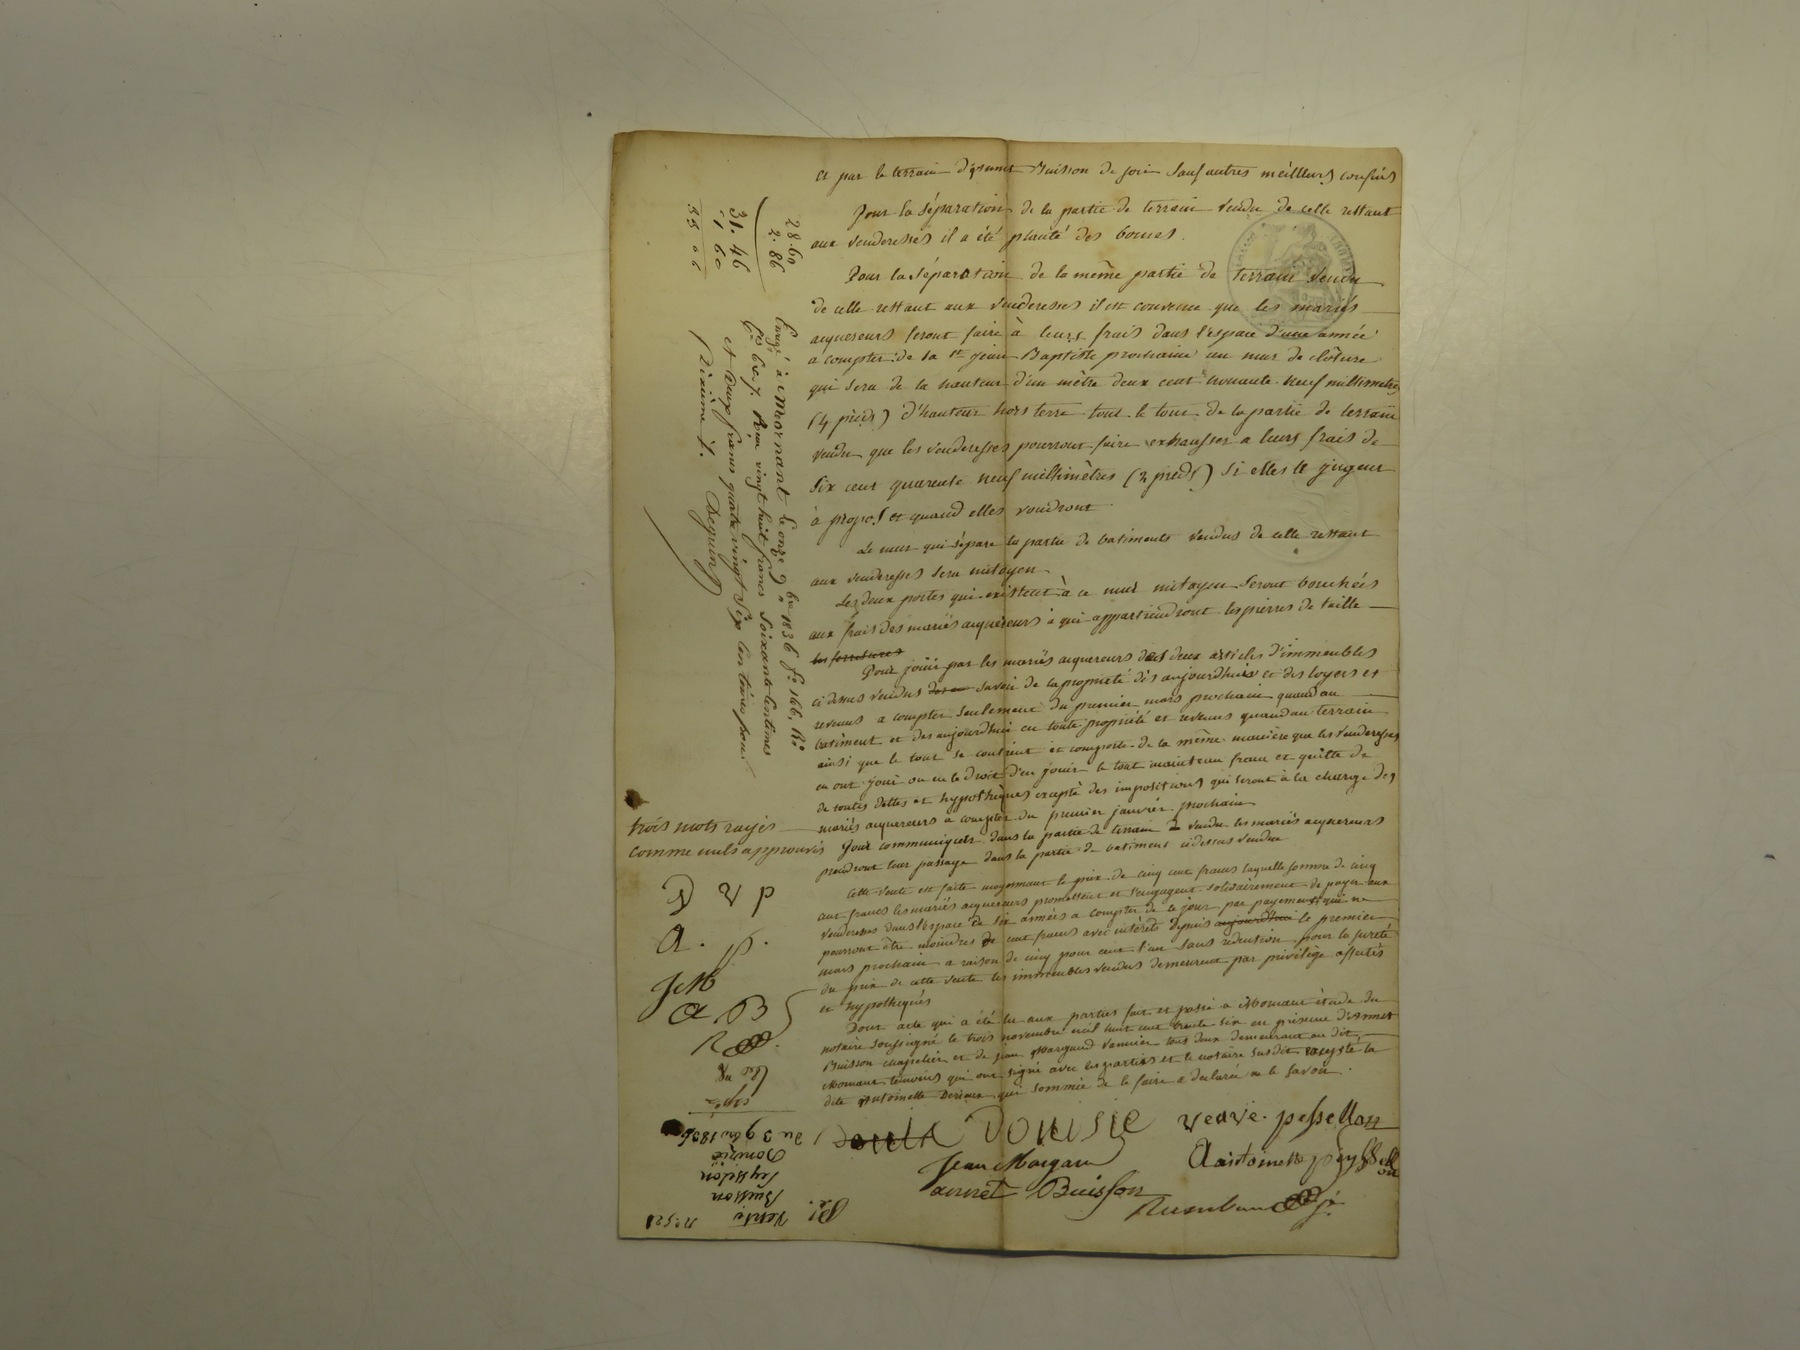 et par le terrain d'annet Buisson de soir sauf autres meilleurs confins
Pour la séparation de la partie de terrain vendu de celle restant
aux venderesses il a été planté des bornes.
Pour la séparation de la même partie de terrain vendu
de celle restant aux venderesses il est convenu que les mariés
acquereurs feront faire à leurs frais dans l'espace d'une année
a compter de la St Jean Baptiste prochaine un mur de clôture
qui sera de la hauteur d'un mètre deux cent nonante neuf millimetres
(4 pieds) d'hauteur hors terre tout le tour de la partie de terrain
vendu que les venderesses pourront faire exhausser a leurs frais de
six cent quarente neuf millimètres (2 pieds) si elles le jugent
à propos et quand elles voudront
Le mur qui sépare la partie de batiments vendus de celle restant
aux venderesses sera mitoyen
Les deux portes qui existent à ce mur mitoyen seront bouchées
aux frais des mariés acquereurs à qui appartiendront les pierres de taille
les ferrures
Pour jouir par les mariés acquereurs des deux articles d'immeubles
ci dessus vendus savoir de la propriété dès aujourdhui et des loyers et
revenus a compter seulement du premier mars prochain quand au
batiment et des aujourdhui en toute propriété et revenus quand au terrain
ainsi que le tout se contient et comporte de la même manière que les venderesses
en ont joui ou eu le droit d'en jouir le tout maintenu franc et quitte de
de toutes dettes et hypothèques excepté des impositions qui seront à la charge des
mariés acquereurs a compter du premier janvier prochain
Pour communiquer dans la partie de terrain vendu les mariés acquereurs
prendront leur passage dans la partie de batiment ci dessus vendue
Cette vente est faite moyennant le prix de cinq cent francs laquelle somme de cinq
cent francs les mariés acquereurs promettent et s'engagent solidairement de payer aux
venderesses dans l'espace de six années a compter de ce jour par payements qui ne
pourront être moindres de cent francs avec intérêts depuis aujourdhui le premier
mars prochain a raison de cinq pour cent l'an sans rétention pour la sureté
du prix de cette vente les immeubles vendus demeurent par privilège affectés
et hypothequés
Dont acte qui a été lu aux parties fait et passé a Mornant étude du
notaire soussigné le trois novembre mil huit cent trente six en présence d'annet
Buisson chapelier et de jean Margand vannier tous deux demeurant au dit
Mornant témoins qui ont signé avec les parties et le notaire susdit excepté la
dite antoinette qui sommée de le faire a déclarée ne le savoir.
Donisie veuve. peysselon
Jean Margan Aantoinette peysselon
annet Buisson
28.60
2.86
31.46
1 60
33 06
Engé à Mornant le onze 9bre 1836 fo 166, Ro
Ces 6 et 7. Reçu vingt huit francs soixante centimes
et deux francs quatre vingt six centimes pour
Dixième %.
Deguin
trois mots rayés
comme nuls approuvés
A. p.
J M
a B
du 3 9bre 1836
Donizié
Peysselon
Buisson
Vente
No 521